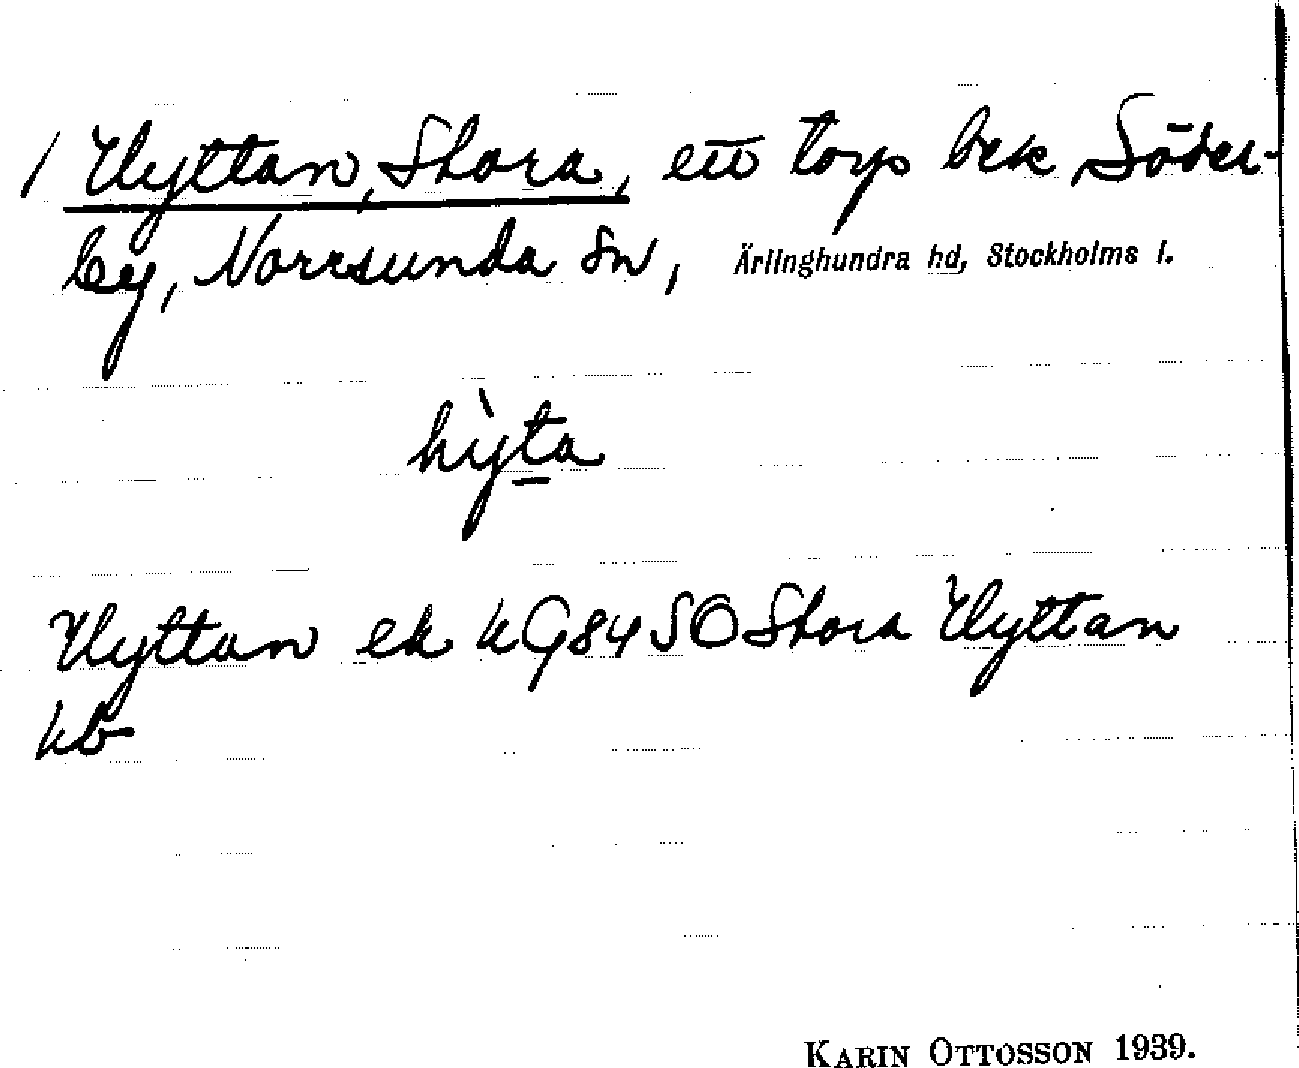 / Hyttan, Stora, ett torp bek Söder-
by, Norrsunda sn, Ärlinghundra hd, Stockholms l.
hy̌ta
Hyttan ek kG84SO Stora Hyttan
kb
KARIN OTTOSSON 1939.